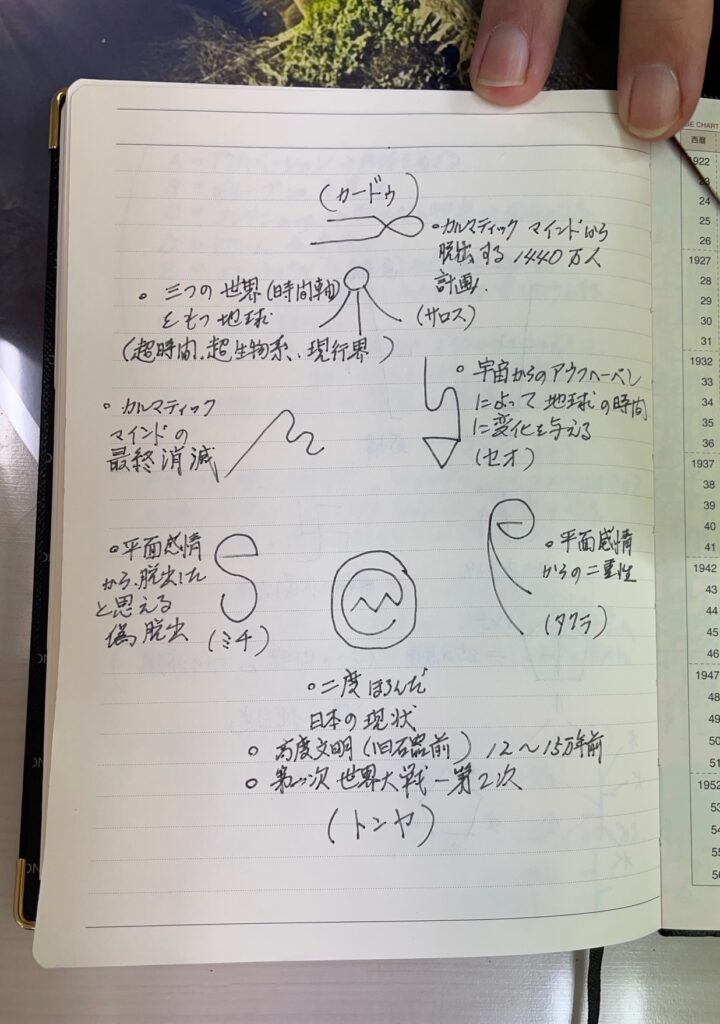 (カードゥ)
。カルマティック マインドから
脱出する 1440万人
計画
。三つの世界(時間軸)
をもつ地球
(サロス)
(超時間、超生物系、現行界)
。宇宙からのアウフヘーベン
によって地球の時間
に変化を与える
(セオ)
。カルマティック
マインドの
最終消滅
。平面感情
から、脱出した
と思える
偽脱出
(ミチ)
。平面感情
からの二重性
(タクラ)
。二度ほろんだ
日本の現状
。高度文明(旧石器前) 12〜15万年前
。第一次世界大戦ー第2次
(トンヤ)
SE CHART
西暦
1922
23
24
25
26
1927
28
29
30
31
1932
33
34
35
36
1937
38
39
40
41
1942
43
44
45
46
1947
48
49
50
51
1952
53
54
55
56